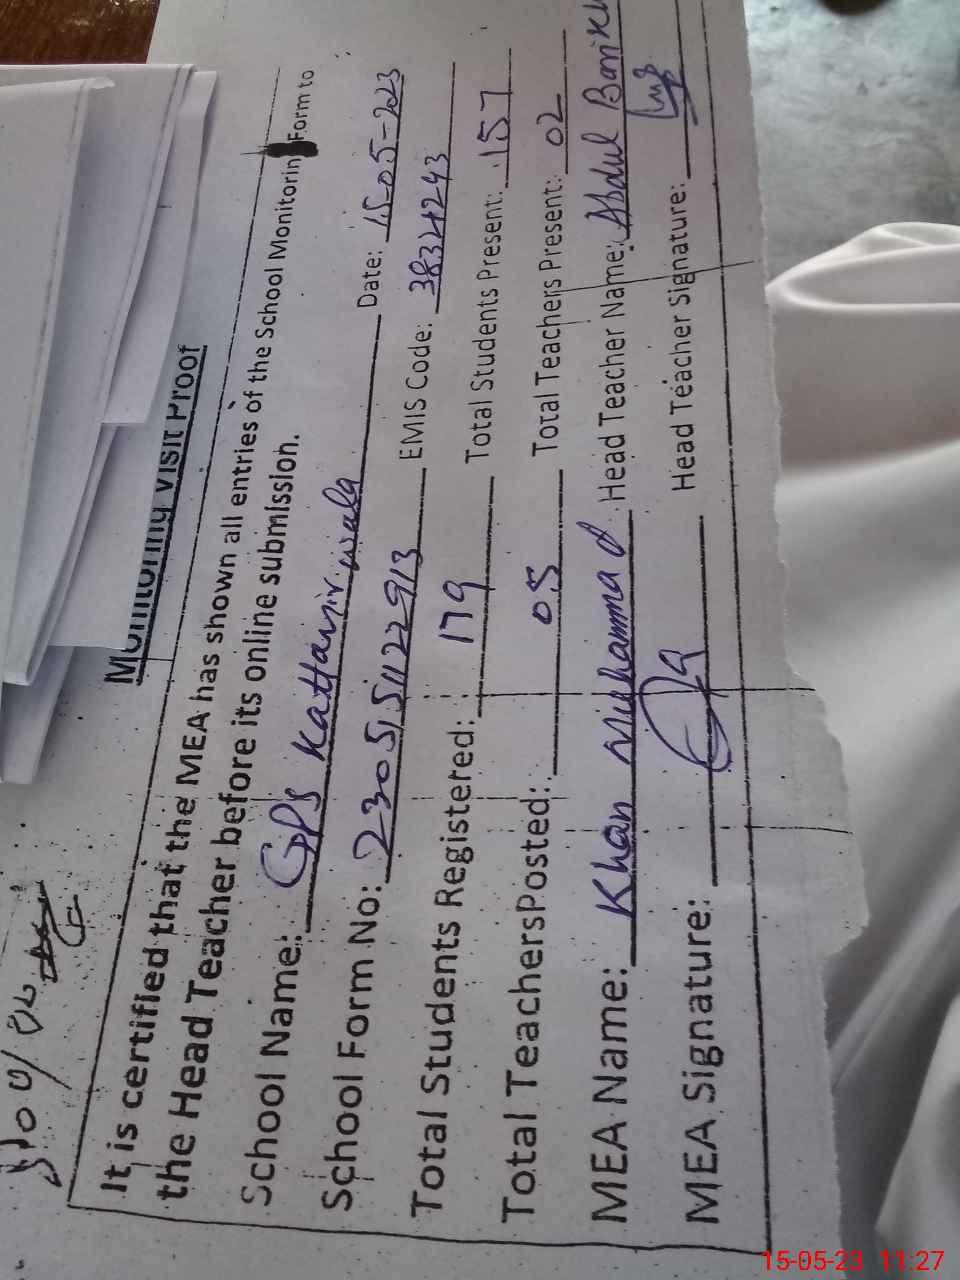 Monitoring Visit Proof
It is certified that the MEA has shown all entries of the School Monitorin Form to
the Head Teacher before its online submission.
School Name: GPS Kattanir wala Date: 15-05-2023
School Form No: 2305151122913 EMIS Code: 38324243
Total Students Registered: 179 Total Students Present: 157
Total TeachersPosted: 05 Total Teachers Present: 02
MEA Name: Khan Muhammad Head Teacher Name: Abdul
MEA Signature: Head Teacher Signature:
15-05-23 11:27